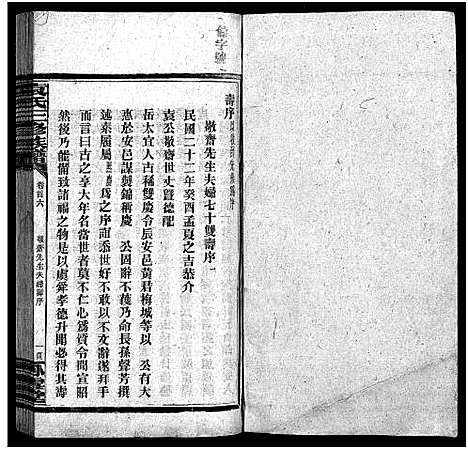 壽序
敬齋先生夫婦七十雙壽序
民國二十二年癸酉孟夏之吉恭介
袁公敬齋世丈暨德配
岳太宜人古稀雙慶令辰安邑黃君梅城等以 公有大
惠於安邑謀製錦稱慶 公固辭不獲乃命長孫聲芳撰
述來履屬熙爲之序誼忝世好不敢以不文辭遂拜手
而言曰古之享大年名當世者莫不仁心爲質令聞宣昭
然後乃能備致諸福之物是以虞舜孝德升聞必得其壽
袁氏三修族譜
卷首六
敬齋先生夫婦壽序
一頁